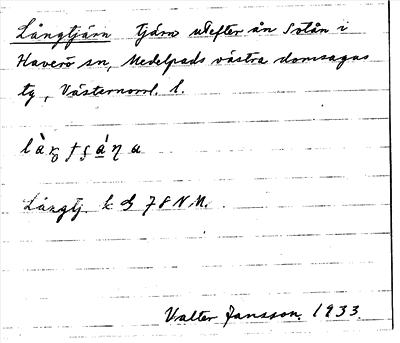 Långtjärn tjärn utefter ån Sölån i
Haverö sn, Medelpads västra domsagas
tg, Västernorrl. l.
Långtj. k G 78 N M.
Valter Jansson. 1933.